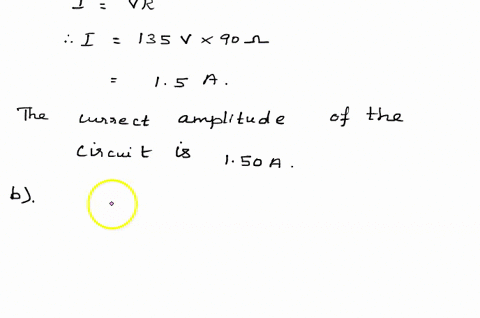 I = VR
∴ I = 135 V × 90 Ω
= 1.5 A.
The currect amplitude of the
circuit is 1.50 A.
b).